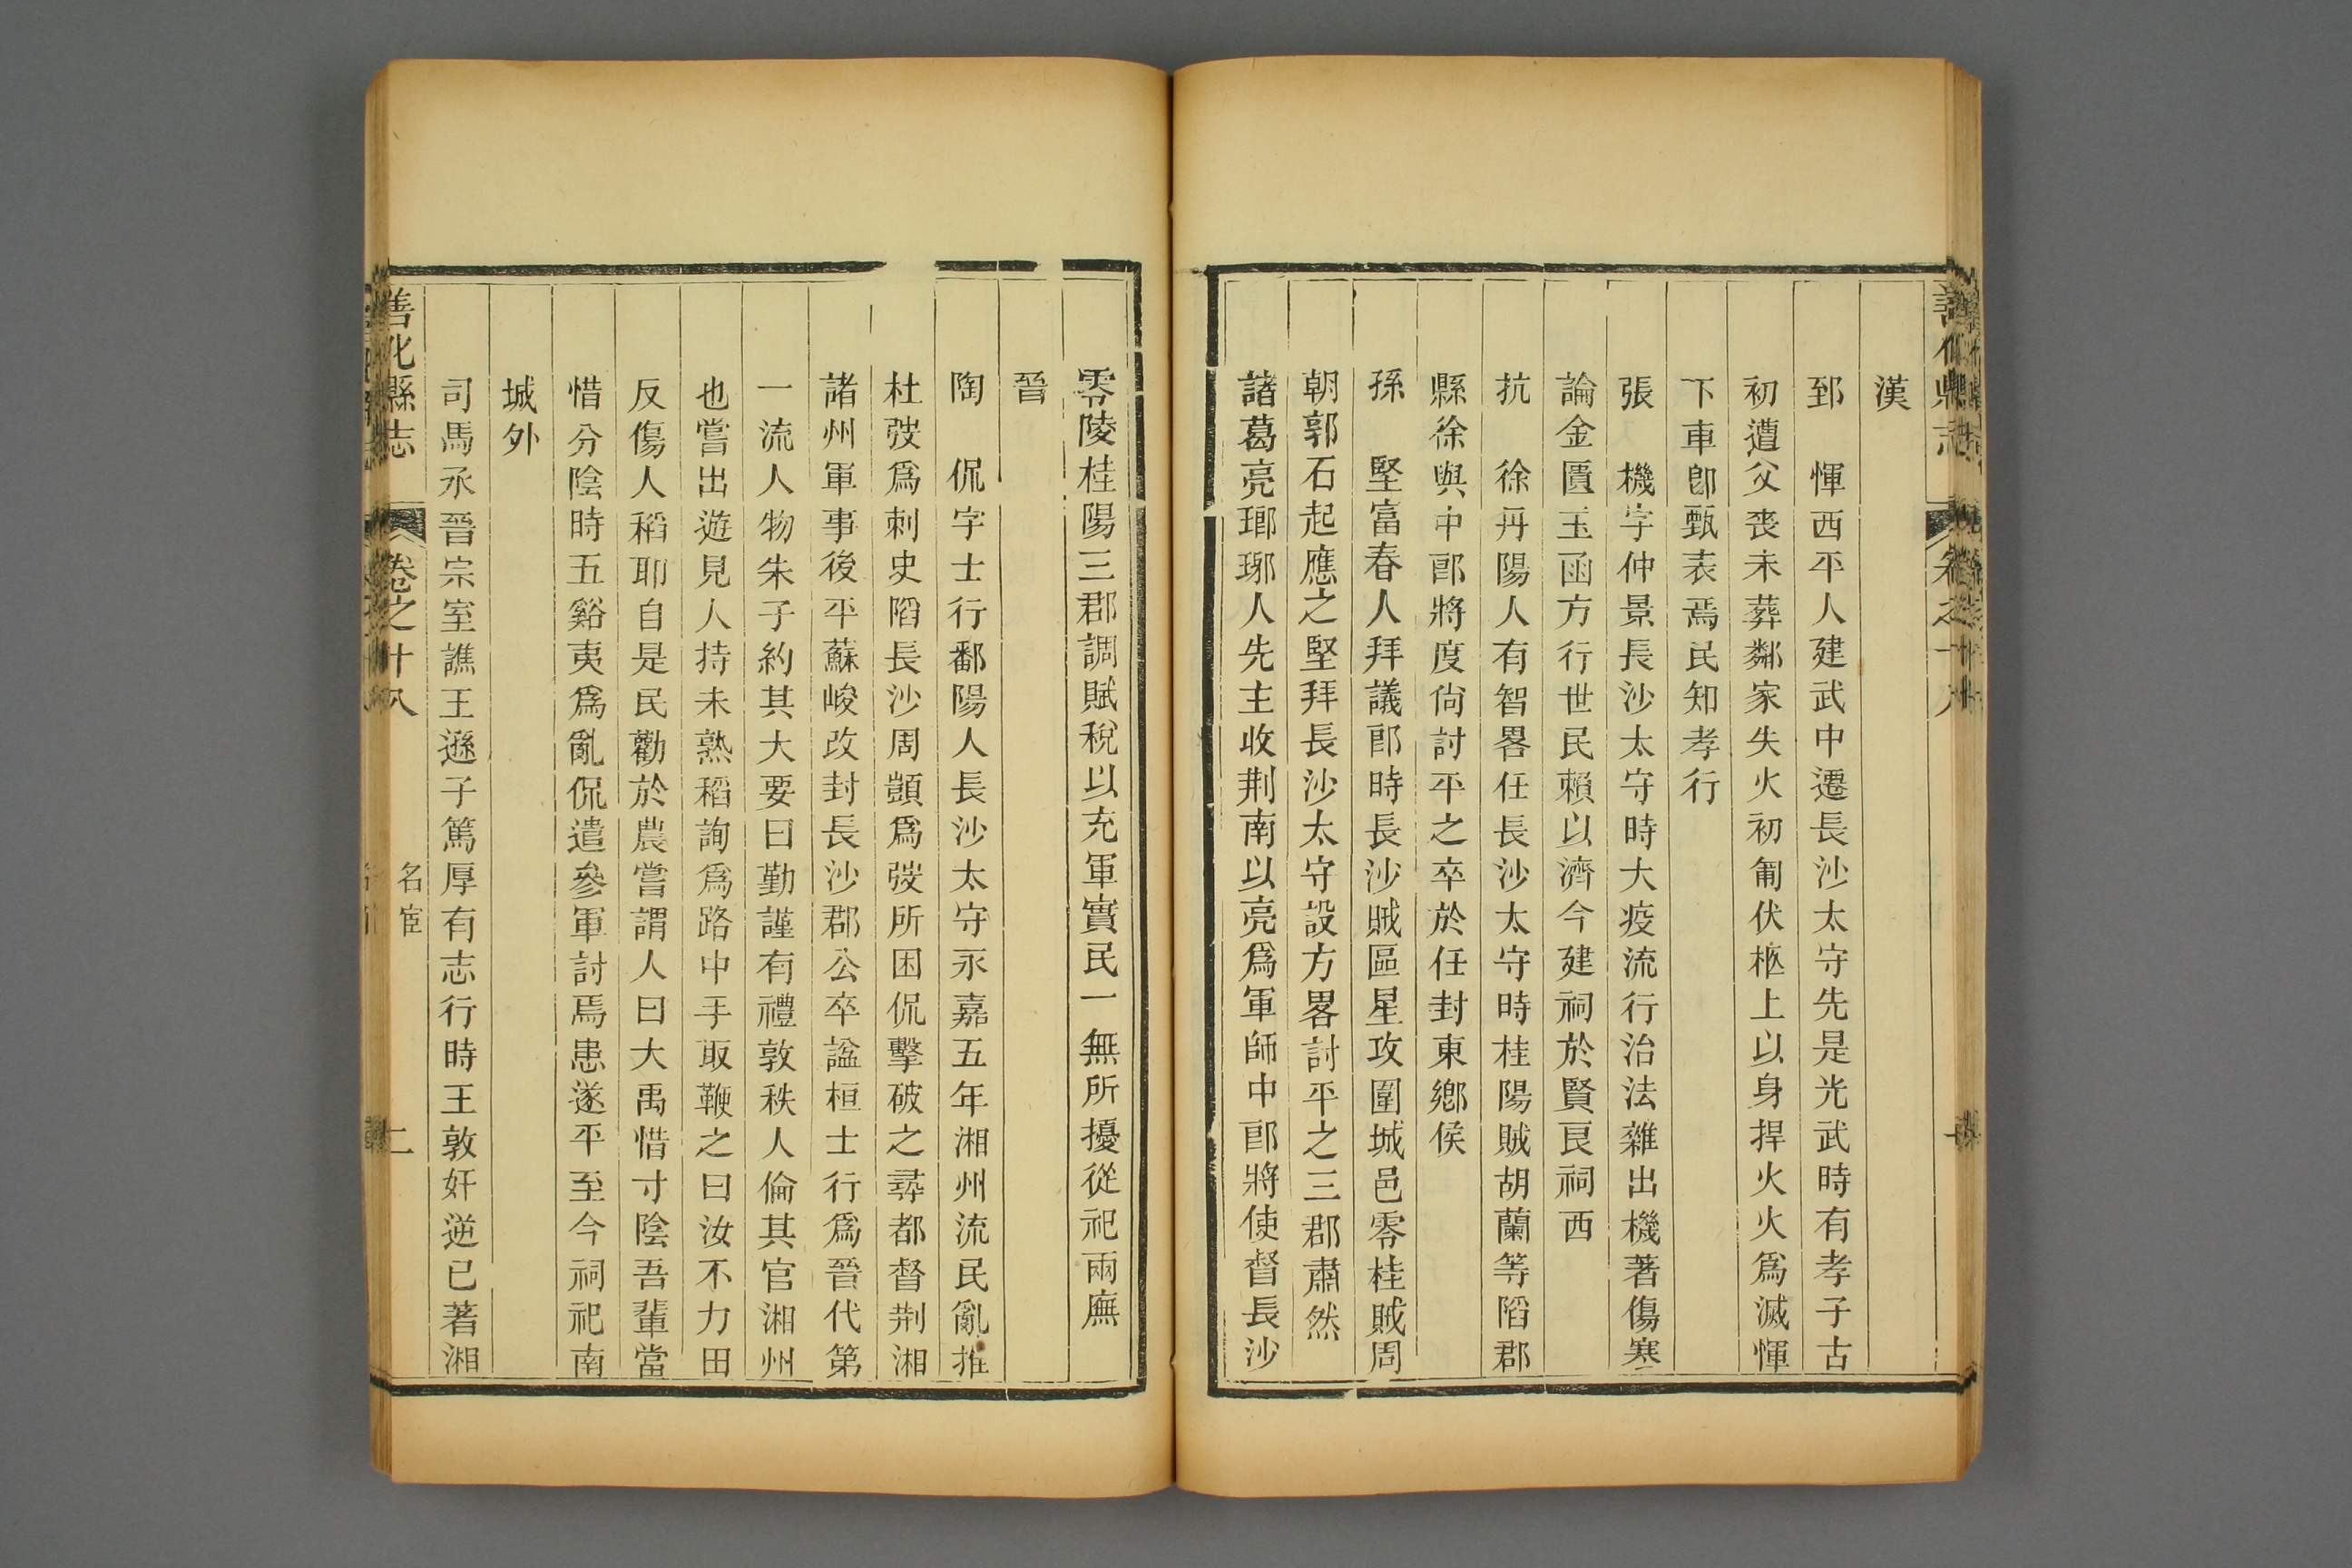 漢
郅 惲西平人建武中遷長沙太守先是光武時有孝子古
初遭父喪未葬鄰家失火初匍伏柩上以身捍火火爲滅惲
下車卽甄表焉民知孝行
張 機字仲景長沙太守時大疫流行治法雜出機著傷寒
論金匱玉函方行世民賴以濟今建祠於賢良祠西
抗 徐丹陽人有智畧任長沙太守時桂陽賊胡蘭等䧟郡
縣徐與中郎將度尙討平之卒於任封東鄉侯
孫 堅富春人拜議郎時長沙賊區星攻圍城邑零桂賊周
朝郭石起應之堅拜長沙太守設方畧討平之三郡肅然
諸葛亮瑯琊人先主收荆南以亮爲軍師中郎將使督長沙
零陵桂陽三郡調賦稅以充軍實民一無所擾從祀兩廡
晉
陶 侃字士行鄱陽人長沙太守永嘉五年湘州流民亂推
杜弢爲刺史䧟長沙周顗爲弢所困侃擊破之尋都督荆湘
諸州軍事後平蘇峻改封長沙郡公卒諡桓士行爲晉代第
一流人物朱子約其大要曰勤謹有禮敦秩人倫其官湘州
也嘗出遊見人持未熟稻詢爲路中手取鞭之曰汝不力田
反傷人稻耶自是民勸於農嘗謂人曰大禹惜寸陰吾輩當
惜分陰時五谿夷爲亂侃遣參軍討焉患遂平至今祠祀南
城外
司馬永晉宗室譙王遜子篤厚有志行時王敦奸逆已著湘
善化縣志 卷之十八 名宦 二